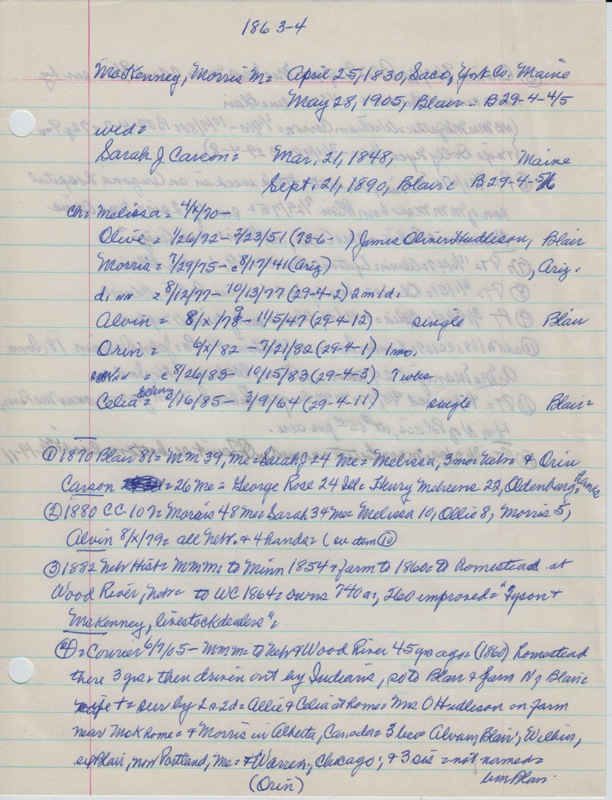 1863-4
McKenney, Morris M= April 25, 1830, Saco, York Co. Maine
May 28, 1905, Blair = B29-4-4/5
wed=
Sarah J Carson= Mar. 21, 1848, Maine
Sept. 21, 1890, Blair= B29-4-5/6
Ch: Melissa = 4/x/70-
Olive = 1/26/72 - 7/23/51 (73-6- ) James Oliver Hudleson, Blair
Morris = 7/29/75 - c8/17/41 (Ariz) , Ariz.
d. nn = 8/12/77 - 10/13/77 (29-4-2) 2m1d.
Alvin = 8/x/79 - 11/5/47 (29-4-12) - single Blair
Orin = 6/x/82 - 7/21/82 (29-4-1) 1mo.
= c8/26/83 - 10/15/83 (29-4-3) 7 wks
Celia = 3/16/85 - 3/9/64 (29-4-11) single Blair=
① 1870 Blair 81= MM 39, Me= Sarah J 24 Me= Melissa, 3mos Nebr= & Orin
Carson =26 Me= George Rose 24 Ill= Henry 22, Oldenburg=
② 1880 CC 107= Morris 48 Me= Sarah 34 Me= Melissa 10, Ollie 8, Morris 5,
Alvin 8/x/79= all Nebr. & 4 hands= (see item ⑩
③ 1882 Neb Hist= MMM= to Minn 1854 & farm to 1860= to Homestead at
Wood River, Nebr= to WC 1864= owns 740 a., 260 improved= "Tyson &
McKenney, livestock dealers"=
④ = Courier 6/7/05 - MMM= to Neb & Wood River 45 yrs ago= (1860) Homestead
there 3 yrs & then driven out by Indians, so to Blair & farm N of Blair=
wife + = sur by 2 s. 2d= Allie & Celia at home= Mrs O Hudleson on farm
near McK home= & Morris in Alberta, Canada= 3 bros Alvam, Blair; Wilbur,
ex Blair, now Portland, Me= & Warren, Chicago; & 3 sis = not named=
(Orin) Blair.